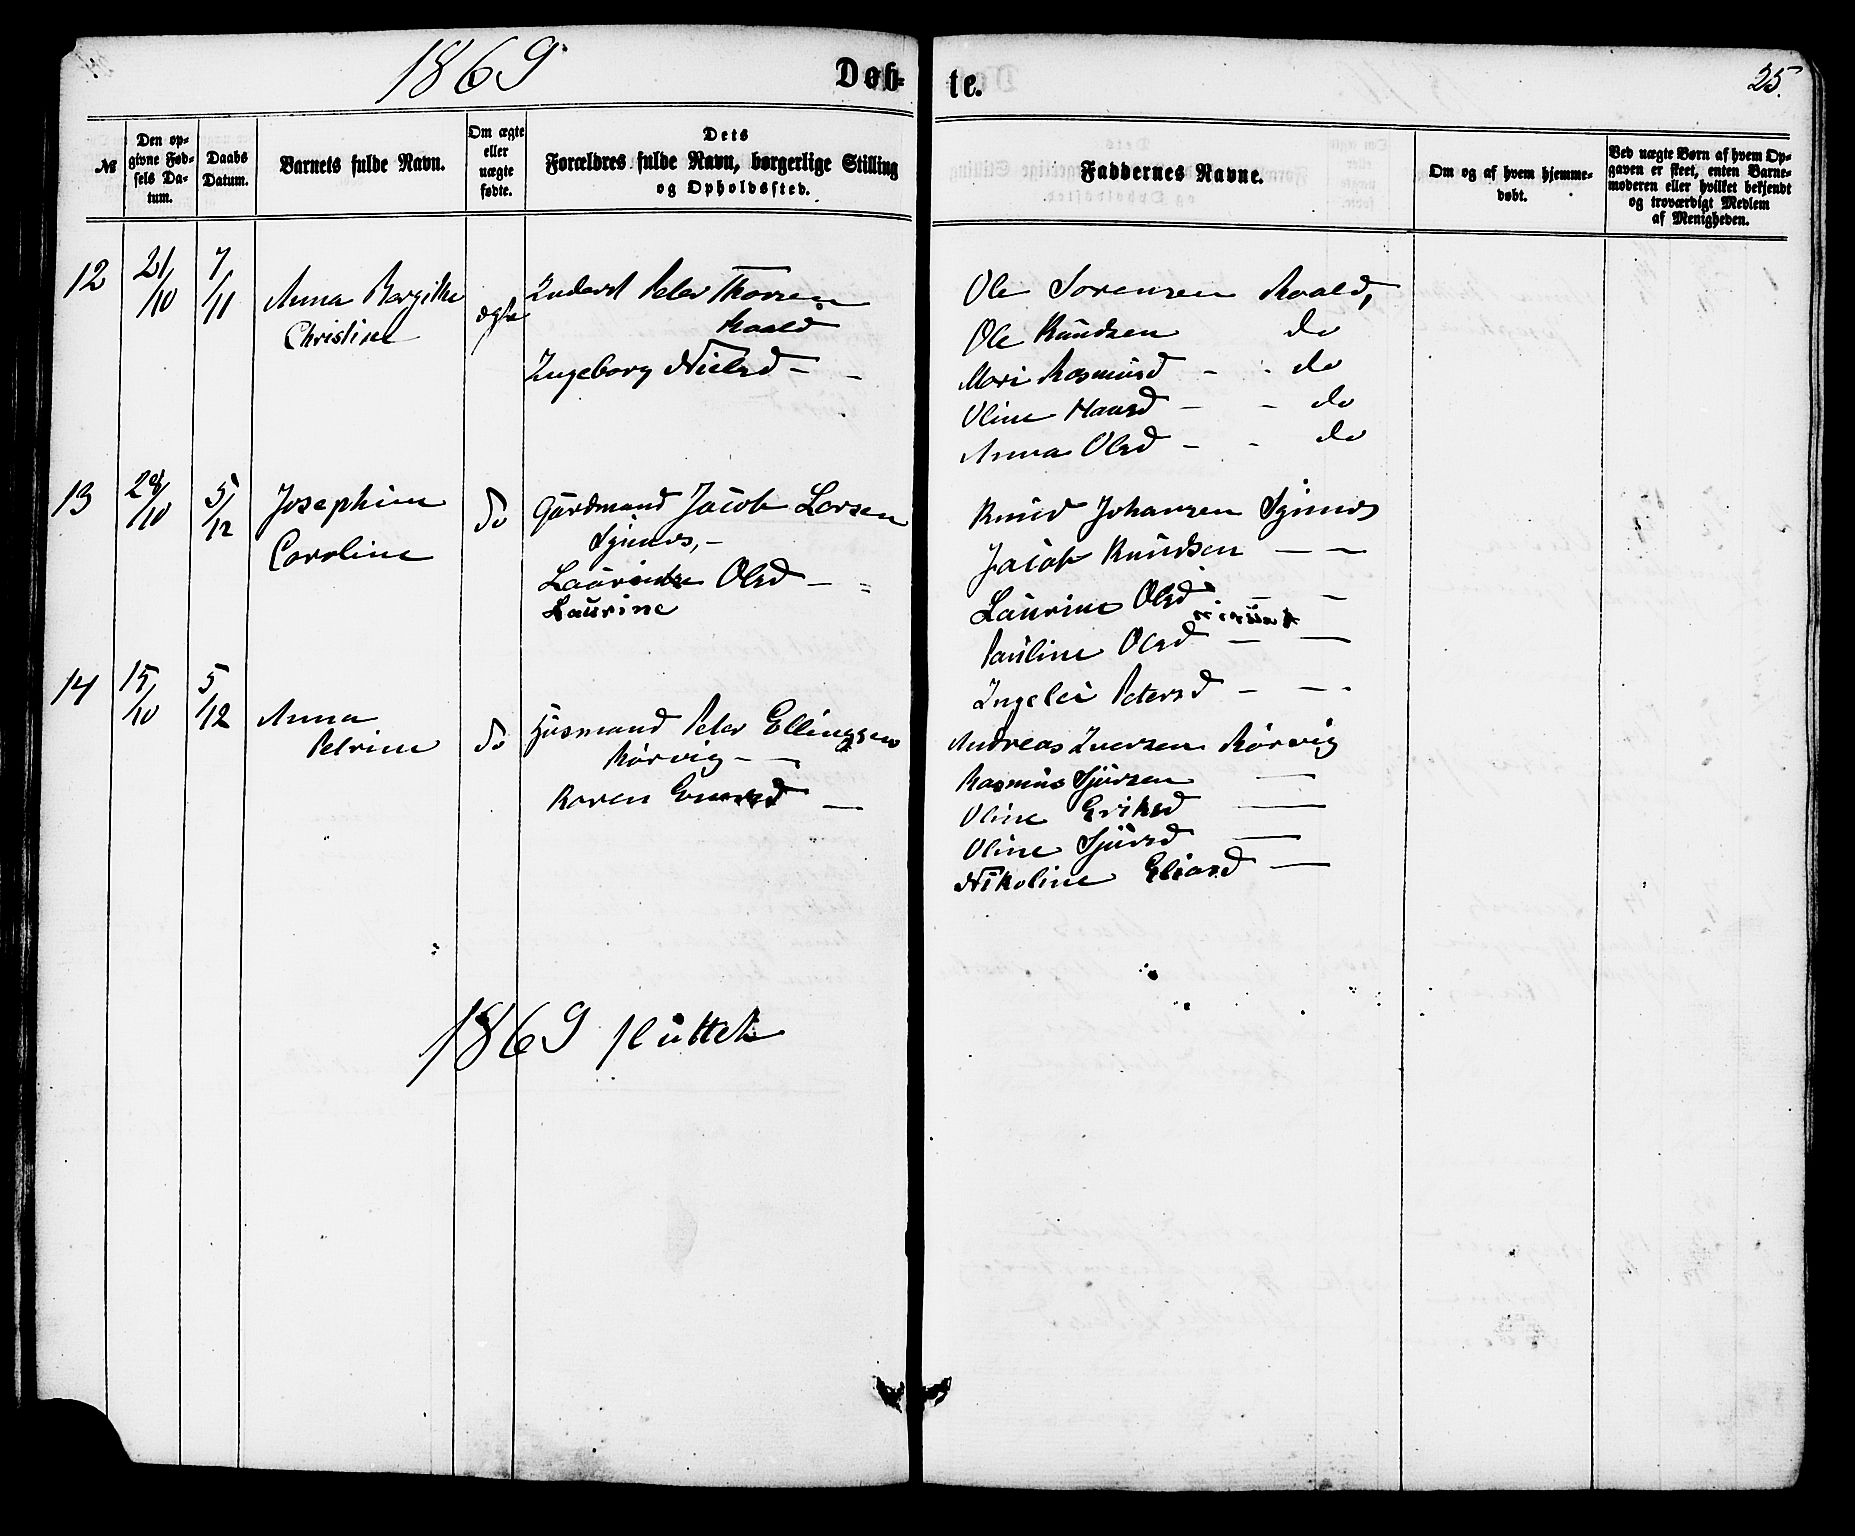 1869
Døb-
te.
25.
№
Den op-
givne Fød-
sels Da-
tum.
Daabs
Datum.
Barnets fulde Navn.
Om ægte
eller
uægte
fødte.
Dets
Forældres fulde Navn, borgerlige Stilling
og Opholdssted.
Faddernes Navne.
Om og af hvem hjemme-
døbt.
Ved uægte Børn af hvem Op-
gaven er skeet, enten Barne-
moderen eller hvilket bekjendt
og troværdigt Medlem
af Menigheden.
12
21/10
7/11
Anna Bergithe
Christine
ægte
Inderst Peter Thorsen
Roald
Ingeborg Nielsd - -
Ole Sørensen Roald,
Ole Knudsen do
Mari Rasmusd - - do
Oline Hansd - - do
Anna Olsd - - do
13
28/10
5/12
Josephine
Caroline
do
Gårdmand Jacob Larsen
Synnes, -
Olsd - -
Laurine
Knud Johansen Synnes
Jacob Knudsen - -
Laurine Olsd - -
Pauline Olsd - -
Ingelei Petersd - - .
14
15/10
5/12
Anna
Petrine
do
Husmand Peter Ellingsen
Rørvig - -
Karen -
Andreas Iversen Rørvig
Rasmus Sjursen -
Oline Eriksd -
Oline Sjursd -
Nikoline Eliasd -
1869 sluttet